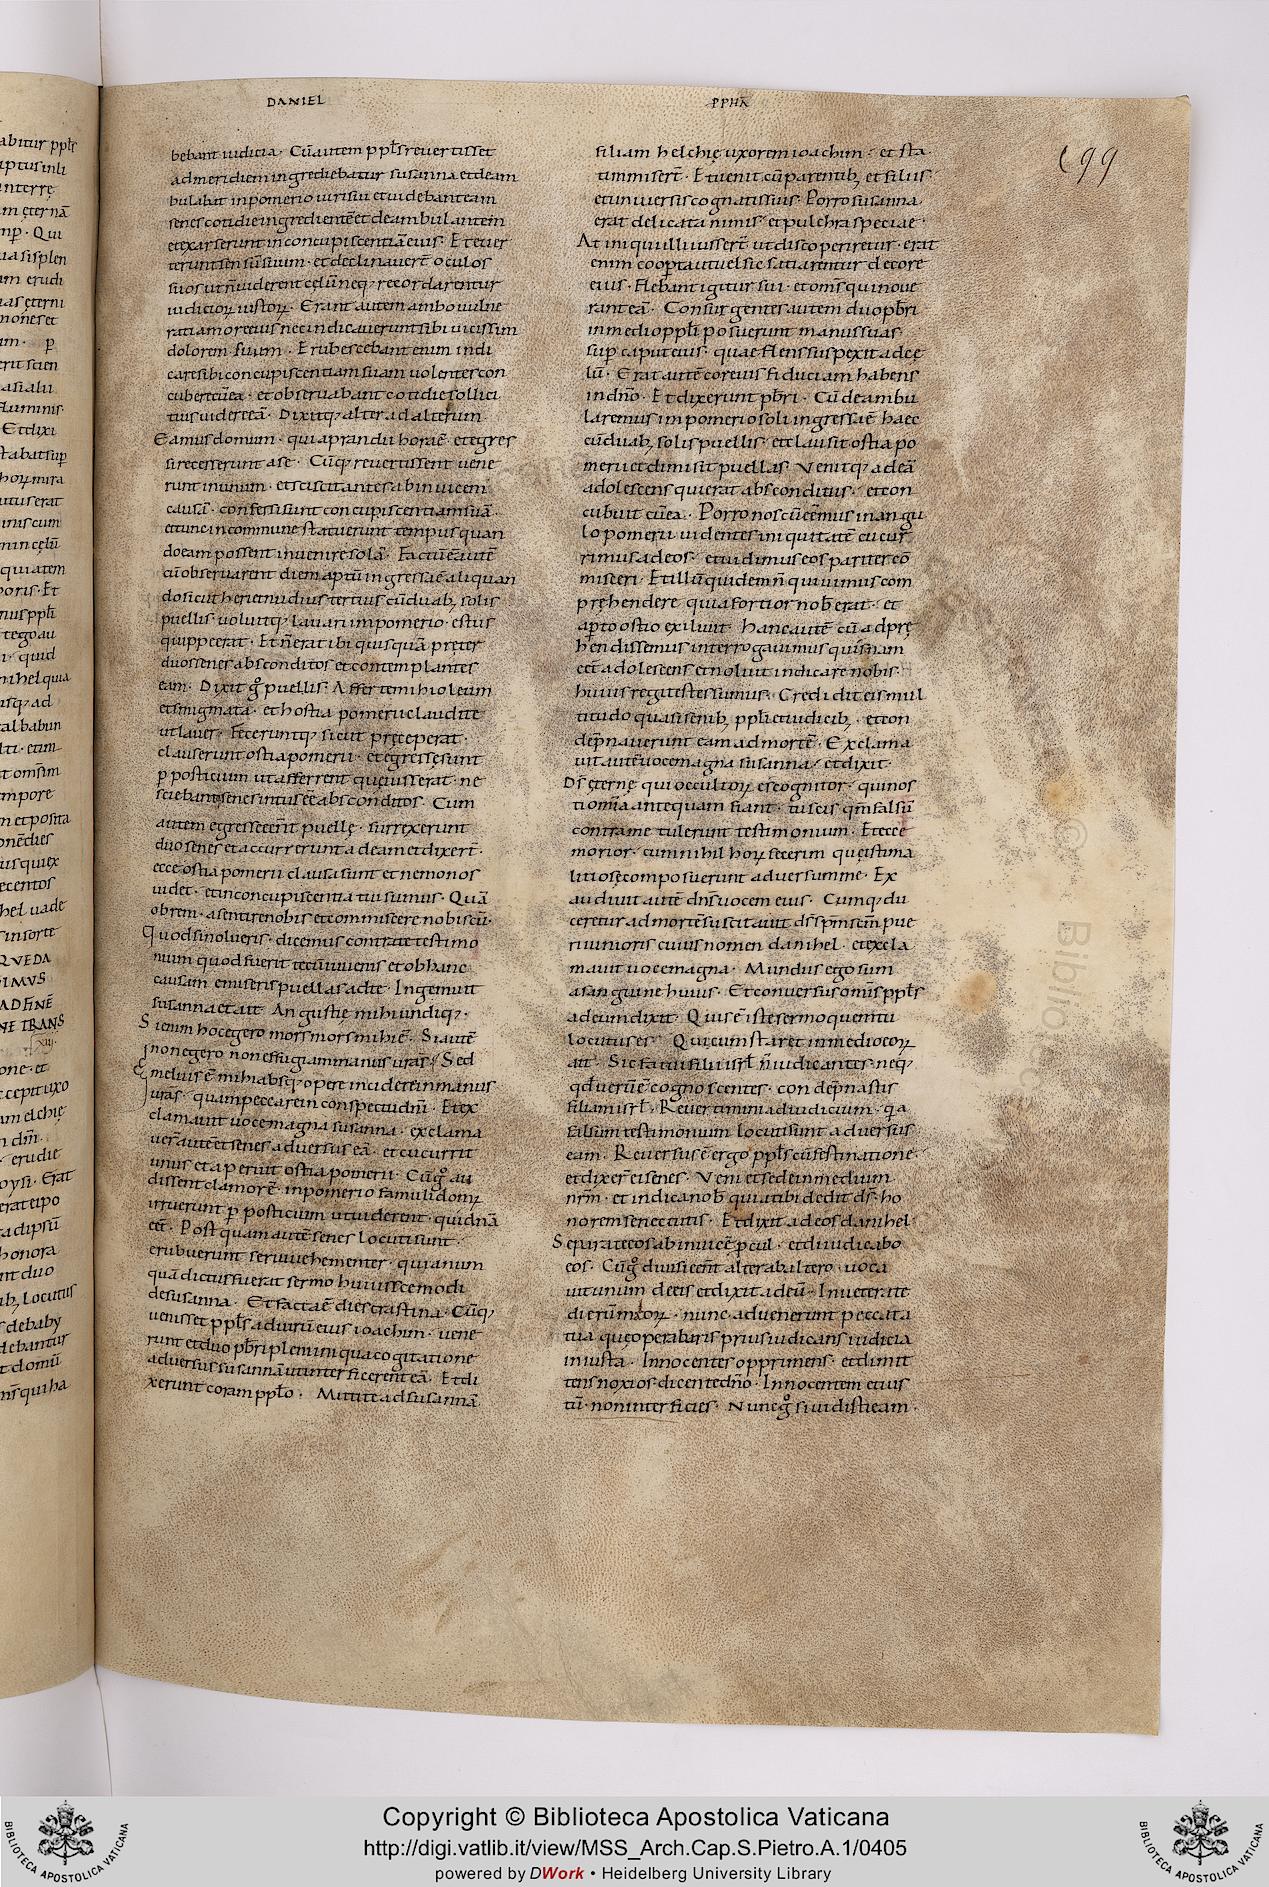 DANIEL
PPHA̅
199
bebant iudicia · Cu̅ autem pplṡ reuertisset
ad meridiem ingrediebatur susanna et deam
bulabat in pomerio uiri sui et uidebant eam
senes cotidie ingrediente̅ et deambulantem
et exarserunt in concupiscentia̅ eius · Et euer
terunt sensu̅ suum · et declinauer̅ oculos
suos ut n̅ uiderent cęlu̅ neq; recordarentur
iudicioꝝ iustoꝝ · Erant autem ambo uulne
rati amore eius nec indicauerunt sibi uicissim
dolorem suum · Erubescebant enim indi
care sibi concupiscentiam suam uolentes con
cubere cu̅ ea · et obseruabant cotidie sollici
tius uidere ea̅ · Dixitq; alter ad alterum ·
Eamus domum · quia prandii hora e̅ et egres
si recesserunt a se · Cu̅q; reuertissent uene
runt in unum · et sciscitantes ab inuicem
causa̅ · confessi sunt concupiscentiam sua̅ ·
et tunc in commune statuerunt tempus quan
do eam possent inuenire sola̅ · Factu̅ e̅ aute̅
cu̅ obseruarent diem aptu̅ ingressa e̅ aliquan
do sicut heri et nudius tertius cu̅ duab; solis
puellis · uoluitq; lauari in pomerio · estus
quippe erat · Et n̅ erat ibi quisqua̅ pręter
duos senes absconditos et contemplantes
eam · Dixit g̊ puellis · Afferte mihi oleum
et smigmata · et hostia pomerii claudite
ut lauer · Feceruntq; sicut pręceperat ·
clauserunt ostia pomerii · et egressę sunt
p̲ posticium ut afferrent quę iusserat · ne
sciebant senes intus ee̅ absconditos · Cum
autem egressę ee̅nt puellę · surrexerunt
duo senes et accurrerunt ad eam et dixert̅ ·
ecce ostia pomerii clausa sunt et nemo nos
uidet · et in concupiscentia tui sumus · Qua̅
obrem · asentire nobis et commiscere nobiscu̅ ·
quod si nolueris · dicemus contra te testimo
nium quod fuerit tecu̅ iuuenis et ob hanc
causam emiseris puellas a dte · Ingemuit
susanna et ait · Angustię mihi undiq; ·
Si enim hoc egero mors mors mihi e̅ · Si aute̅
non egero non effugiam manus ur̅as · Sed
melius e̅ mihi absq; opere incidere in manus
ur̅as · quam peccare in conspectu dn̅i · Et ex
clamauit uoce magna susanna · exclama
uer̅ aute̅ et senes aduersus ea̅ · et cucurrit
unus et aperuit ostia pomerii · Cu̅g̊ au
dissent clamore̅ · in pomerio famuli domꝝ
irruerunt p̲ posticium ut uiderent · quidna̅
ee̅t · Post quam aute̅ senes locuti sunt ·
erubuerunt serui uehementer · quia num
qua̅ dictus fuerat sermo huiuscemodi
de susanna · Et facta e̅ dies crastina · Cu̅q;
uenisset pplṡ ad uiru̅ eius ioachim · uene
runt et duo pb̅ri pleni iniqua cogitatione
aduersus susanna̅ ut interficerent ea̅ · Et di
xerunt coram ppło · Mittite ad susanna̅
filiam helchię uxorem ioachim · et sta
tim miser̅t · Et uenit cu̅ parentib; et filiis ·
et uniuersis cognatis suis · Porro susanna
erat delicata nimis · et pulchra speciae ·
At iniqui illi iusser̅t ut discoperiretur · erat
enim coop̲ta ut uel sic satiarentur decore
eius · Flebant igitur sui · et om̅s qui noue
rant ea̅ · Consurgentes autem duo pb̅ri
in medio ppłi posuerunt manus suas
sup̲ caput eius · quae flens suspexit ad cę
lu̅ · Erat aute̅ cor eius fiduciam habens
in dn̅o · Et dixerunt pb̅ri · Cu̅ deambu
laremus in pomerio soli ingressa e̅ haec
cu̅ duab; solis puellis · et clausit ostia po
merii et dimisit puellas · Venitq; ad ea̅
adolescens qui erat absconditus · et con
cubuit cu̅ ea · Porro nos cu̅ ee̅mus in angu
lo pomerii uidentes iniquitate̅ cucur
rimus ad eos · et uidimus eos pariter co̅
misceri · Et illu̅ quidem n̅ quiuimus com
pręhendere quia fortior nob̅ erat · et
ap̲to ostio exiliuit · Hanc aute̅ cu̅ adprę
hendissemus interrogauimus quisnam
ee̅t adolescens et noluit indicare nobis ·
huius rei testes sumus · Credidit eis mul
titudo quasi senib; ppłi et iudicib; · et con
dep̅nauerunt eam ad morte̅ · Exclama
uit aute̅ uoce magna susanna · et dixit ·
Ds̅ ęterne qui occultoꝝ es cognitor · qui nos
ti om̅ia antequam fiant · tu scis qm̅ falsu̅
contra me tulerunt testimonium · Et ecce
morior · cum nihil hoꝝ fecerim quę isti ma
litiosę composuerunt aduersum me · Ex
audiuit aute̅ dn̅s uocem eius · Cumq; du
ceretur ad morte̅ suscitauit ds̅ sp̅m sc̅m pue
ri iunioris cuius nomen danihel · et excla
mauit uoce magna · Mundus ego sum
a sanguine huius · Et conuersus omis ppłs
ad eum dixit · Quis e̅ iste sermo quem tu
locutus es · Qui cum staret in medio eoꝝ
ait · Sic fatui filii isrł n̅ iudicantes neq;
qđ ueru̅ e̅ cognoscentes · condep̅nastis
filiam isrł · Reuertimini ad iudicium · q̅a
falsum testimonium locuti sunt aduersus
eam · Reuersus e̅ ergo ppłs cu̅ festinatione ·
et dixer̅ ei senes · Veni et sede in medium
nr̅m · et indica nob̅ quia tibi dedit ds̅ · ho
norem senectutis · Et dixit ad eos danihel ·
Separate eos ab inuice̅ p̲cul · et diiudicabo
eos · Cu̅g̊ diuisi ee̅nt alter ab altero · uoca
uit unum de eis et dixit ad eu̅ · Inueterate
dieru̅ maloꝝ · nunc aduenerunt peccata
tua quę operabaris prius iudicans iudicia
iniusta · Innocentes opprimens · et dimit
tens noxios dicente dn̅o · Innocentem et ius
tu̅ · non interficies · Nunc g̊ si uidisti eam ·
Copyright © Biblioteca Apostolica Vaticana
http://digi.vatlib.it/view/MSS_Arch.Cap.S.Pietro.A.1/0405
powered by DWork • Heidelberg University Library
BIBLIOTECA APOSTOLICA VATICANA
BIBLIOTECA APOSTOLICA VATICANA